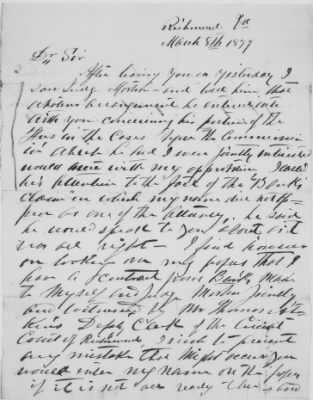 Richmond Va
March 8th 1877
Dr Sir
After leaving you on yesterday I
saw Judge Morton and told him, that
whatever arrangement he entered into
with you concerning his portion of the
fees in the Cases before the Commissio
in which he and I were jointly interested
would meet with my approbation I called
his attention to the fact of the "Banks
Claim" in which my name did not ap-
pear as one of the attorneys, he said
he would speak to you about it &
was all right - I find however
on looking over my papers that I
have a contract from Banks made
to Myself and Judge Morton Jointly
and witnessed by Mr Thomas
Deputy Clerk of the Circuit
Court of Richmond, I wish to prevent
any mistake that might occur you
would enter my name on the papers
if it is not all ready there